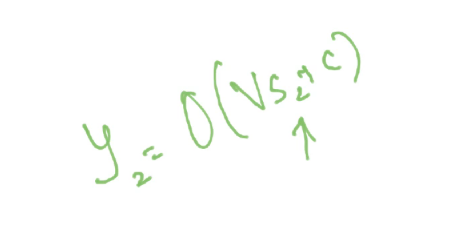 y₂ = O(VS₂+C)